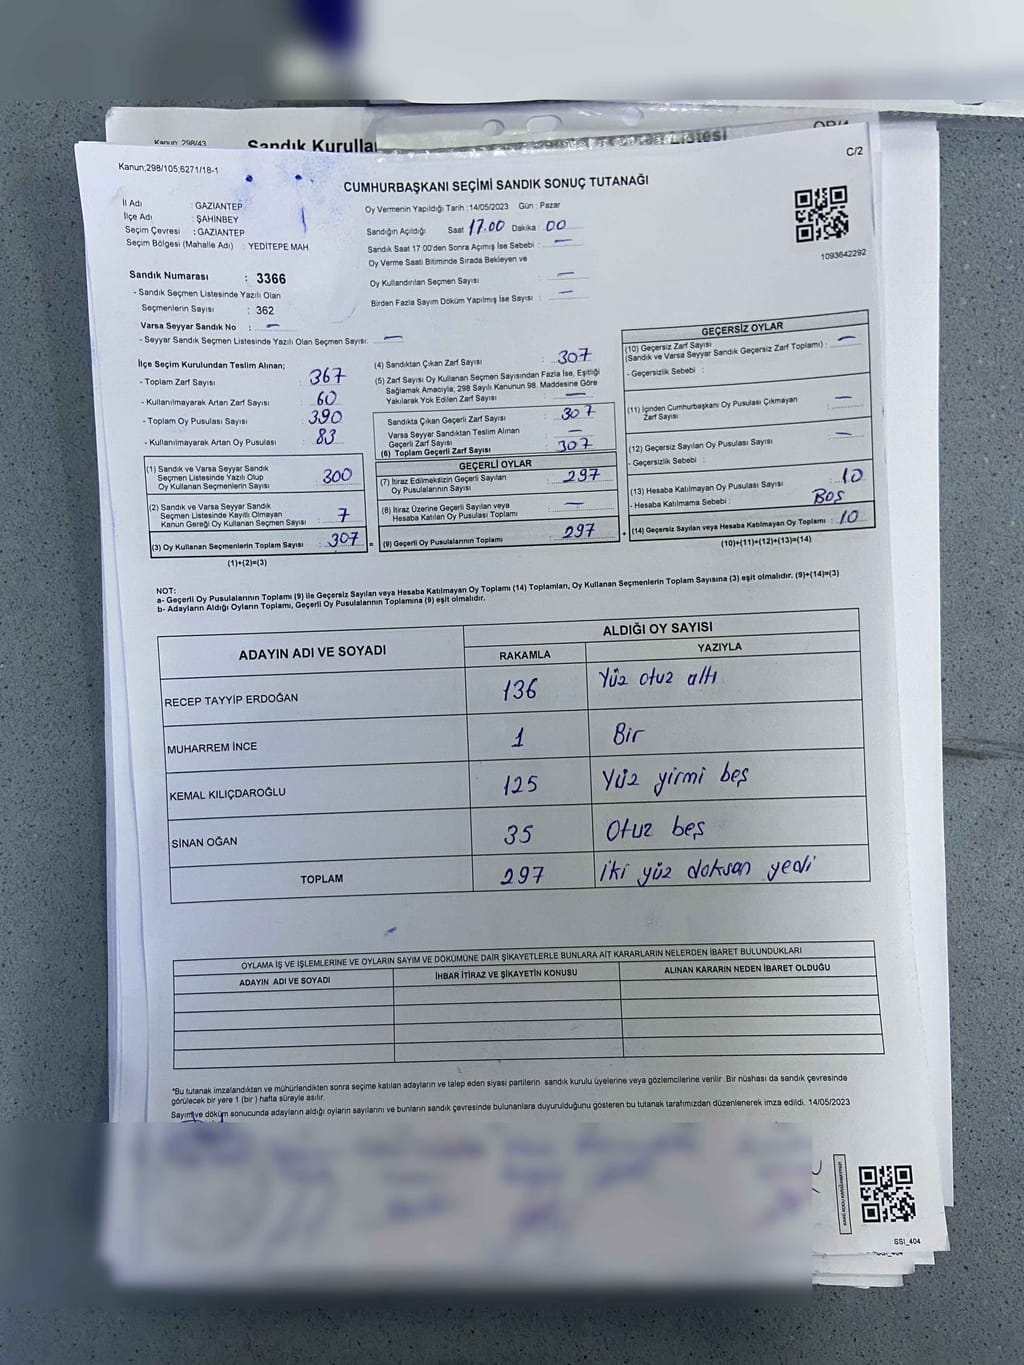 Kanun: 298/43
Sandık Kurulla
Listesi
Kanun;298/105;6271/18-1
C/2
CUMHURBAŞKANI SEÇİMİ SANDIK SONUÇ TUTANAĞI
İl Adı : GAZİANTEP
İlçe Adı : ŞAHİNBEY
Seçim Çevresi : GAZİANTEP
Seçim Bölgesi (Mahalle Adı) : YEDİTEPE MAH
Oy Vermenin Yapıldığı Tarih : 14/05/2023 Gün : Pazar
Sandığın Açıldığı Saat 17.00 Dakika : 00
Sandık Saat 17:00'den Sonra Açımış İse Sebebi : —
Oy Verme Saati Bitiminde Sırada Bekleyen ve
Oy Kullandırılan Seçmen Sayısı —
Birden Fazla Sayım Döküm Yapılmış İse Sayısı : —
1093642292
Sandık Numarası : 3366
- Sandık Seçmen Listesinde Yazılı Olan
Seçmenlerin Sayısı : 362
Varsa Seyyar Sandık No : —
- Seyyar Sandık Seçmen Listesinde Yazılı Olan Seçmen Sayısı: —
İlçe Seçim Kurulundan Teslim Alınan;
- Toplam Zarf Sayısı : 367
- Kullanılmayarak Artan Zarf Sayısı : 60
- Toplam Oy Pusulası Sayısı : 390
- Kullanılmayarak Artan Oy Pusulası : 83
(1) Sandık ve Varsa Seyyar Sandık
Seçmen Listesinde Yazılı Olup
Oy Kullanan Seçmenlerin Sayısı : 300
(2) Sandık ve Varsa Seyyar Sandık
Seçmen Listesinde Kayıtlı Olmayan
Kanun Gereği Oy Kullanan Seçmen Sayısı : 7
(3) Oy Kullanan Seçmenlerin Toplam Sayısı : 307 =
(1)+(2)=(3)
(4) Sandıktan Çıkan Zarf Sayısı : 307
(5) Zarf Sayısı Oy Kullanan Seçmen Sayısından Fazla İse, Eşitliği
Sağlamak Amacıyla, 298 Sayılı Kanunun 98. Maddesine Göre
Yakılarak Yok Edilen Zarf Sayısı : —
Sandıkta Çıkan Geçerli Zarf Sayısı : 307
Varsa Seyyar Sandıktan Teslim Alınan
Geçerli Zarf Sayısı : —
(6) Toplam Geçerli Zarf Sayısı : 307
GEÇERLİ OYLAR
(7) İtiraz Edilmeksizin Geçerli Sayılan
Oy Pusulalarının Sayısı : 297
(8) İtiraz Üzerine Geçerli Sayılan veya
Hesaba Katılan Oy Pusulası Toplamı : —
(9) Geçerli Oy Pusulalarının Toplamı : 297 +
GEÇERSİZ OYLAR
(10) Geçersiz Zarf Sayısı
(Sandık ve Varsa Seyyar Sandık Geçersiz Zarf Toplamı) : —
- Geçersizlik Sebebi :
(11) İçinden Cumhurbaşkanı Oy Pusulası Çıkmayan
Zarf Sayısı : —
(12) Geçersiz Sayılan Oy Pusulası Sayısı : —
- Geçersizlik Sebebi :
(13) Hesaba Katılmayan Oy Pusulası Sayısı : 10
- Hesaba Katılmama Sebebi : Boş
(14) Geçersiz Sayılan veya Hesaba Katılmayan Oy Toplamı : 10
(10)+(11)+(12)+(13)=(14)
NOT:
a- Geçerli Oy Pusulalarının Toplamı (9) ile Geçersiz Sayılan veya Hesaba Katılmayan Oy Toplamı (14) Toplamları, Oy Kullanan Seçmenlerin Toplam Sayısına (3) eşit olmalıdır. (9)+(14)=(3)
b- Adayların Aldığı Oyların Toplamı, Geçerli Oy Pusulalarının Toplamına (9) eşit olmalıdır.
ADAYIN ADI VE SOYADI
ALDIĞI OY SAYISI
RAKAMLA YAZIYLA
RECEP TAYYİP ERDOĞAN 136 Yüz otuz altı
MUHARREM İNCE 1 Bir
KEMAL KILIÇDAROĞLU 125 Yüz yirmi beş
SİNAN OĞAN 35 Otuz beş
TOPLAM 297 İki yüz doksan yedi
OYLAMA İŞ VE İŞLEMLERİNE VE OYLARIN SAYIM VE DÖKÜMÜNE DAİR ŞİKAYETLERLE BUNLARA AİT KARARLARIN NELERDEN İBARET BULUNDUKLARI
ADAYIN ADI VE SOYADI İHBAR İTİRAZ VE ŞİKAYETİN KONUSU ALINAN KARARIN NEDEN İBARET OLDUĞU
*Bu tutanak imzalandıktan ve mühürlendikten sonra seçime katılan adayların ve talep eden siyasi partilerin sandık kurulu üyelerine veya gözlemcilerine verilir .Bir nüshası da sandık çevresinde
görülecek bir yere 1 (bir ) hafta süreyle asılır.
Sayım ve döküm sonucunda adayların aldığı oyların sayılarını ve bunların sandık çevresinde bulunanlara duyurulduğunu gösteren bu tutanak tarafımızdan düzenlenerek imza edildi. 14/05/2023
SSI_404